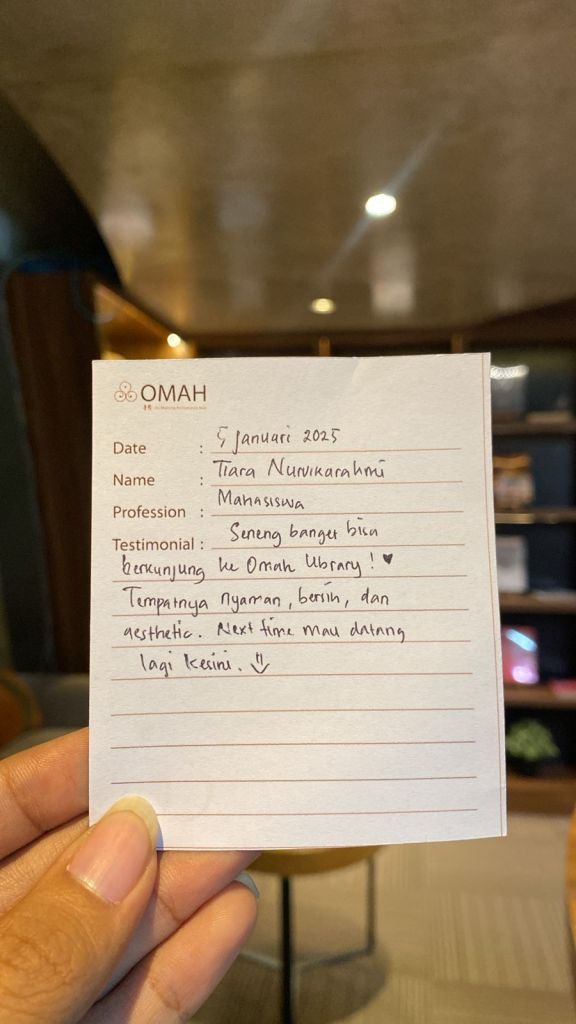 OMAH
Date : 5 Januari 2025
Name : Tiara Nurvikarahmi
Profession : Mahasiswa
Testimonial : Seneng banget bisa
berkunjung ke Omah Library! ♥
Tempatnya nyaman, bersih, dan
aesthetic. Next time mau datang
lagi kesini.